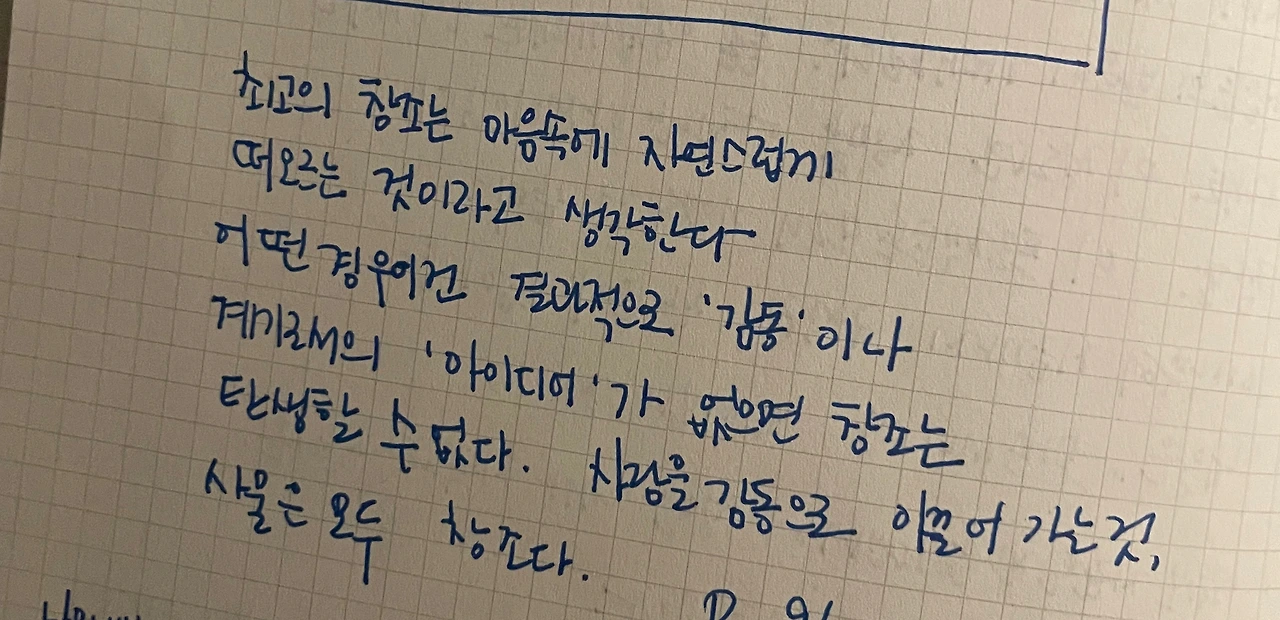 최고의 창조는 마음속에 자연스럽게
떠오르는 것이라고 생각한다
어떤 경우이건 결과적으로 '감동'이나
계기로서의 '아이디어'가 없으면 창조는
탄생할 수 없다. 사람을 감동으로 이끌어 가는 것,
사물은 모두 창조다.
P. 91